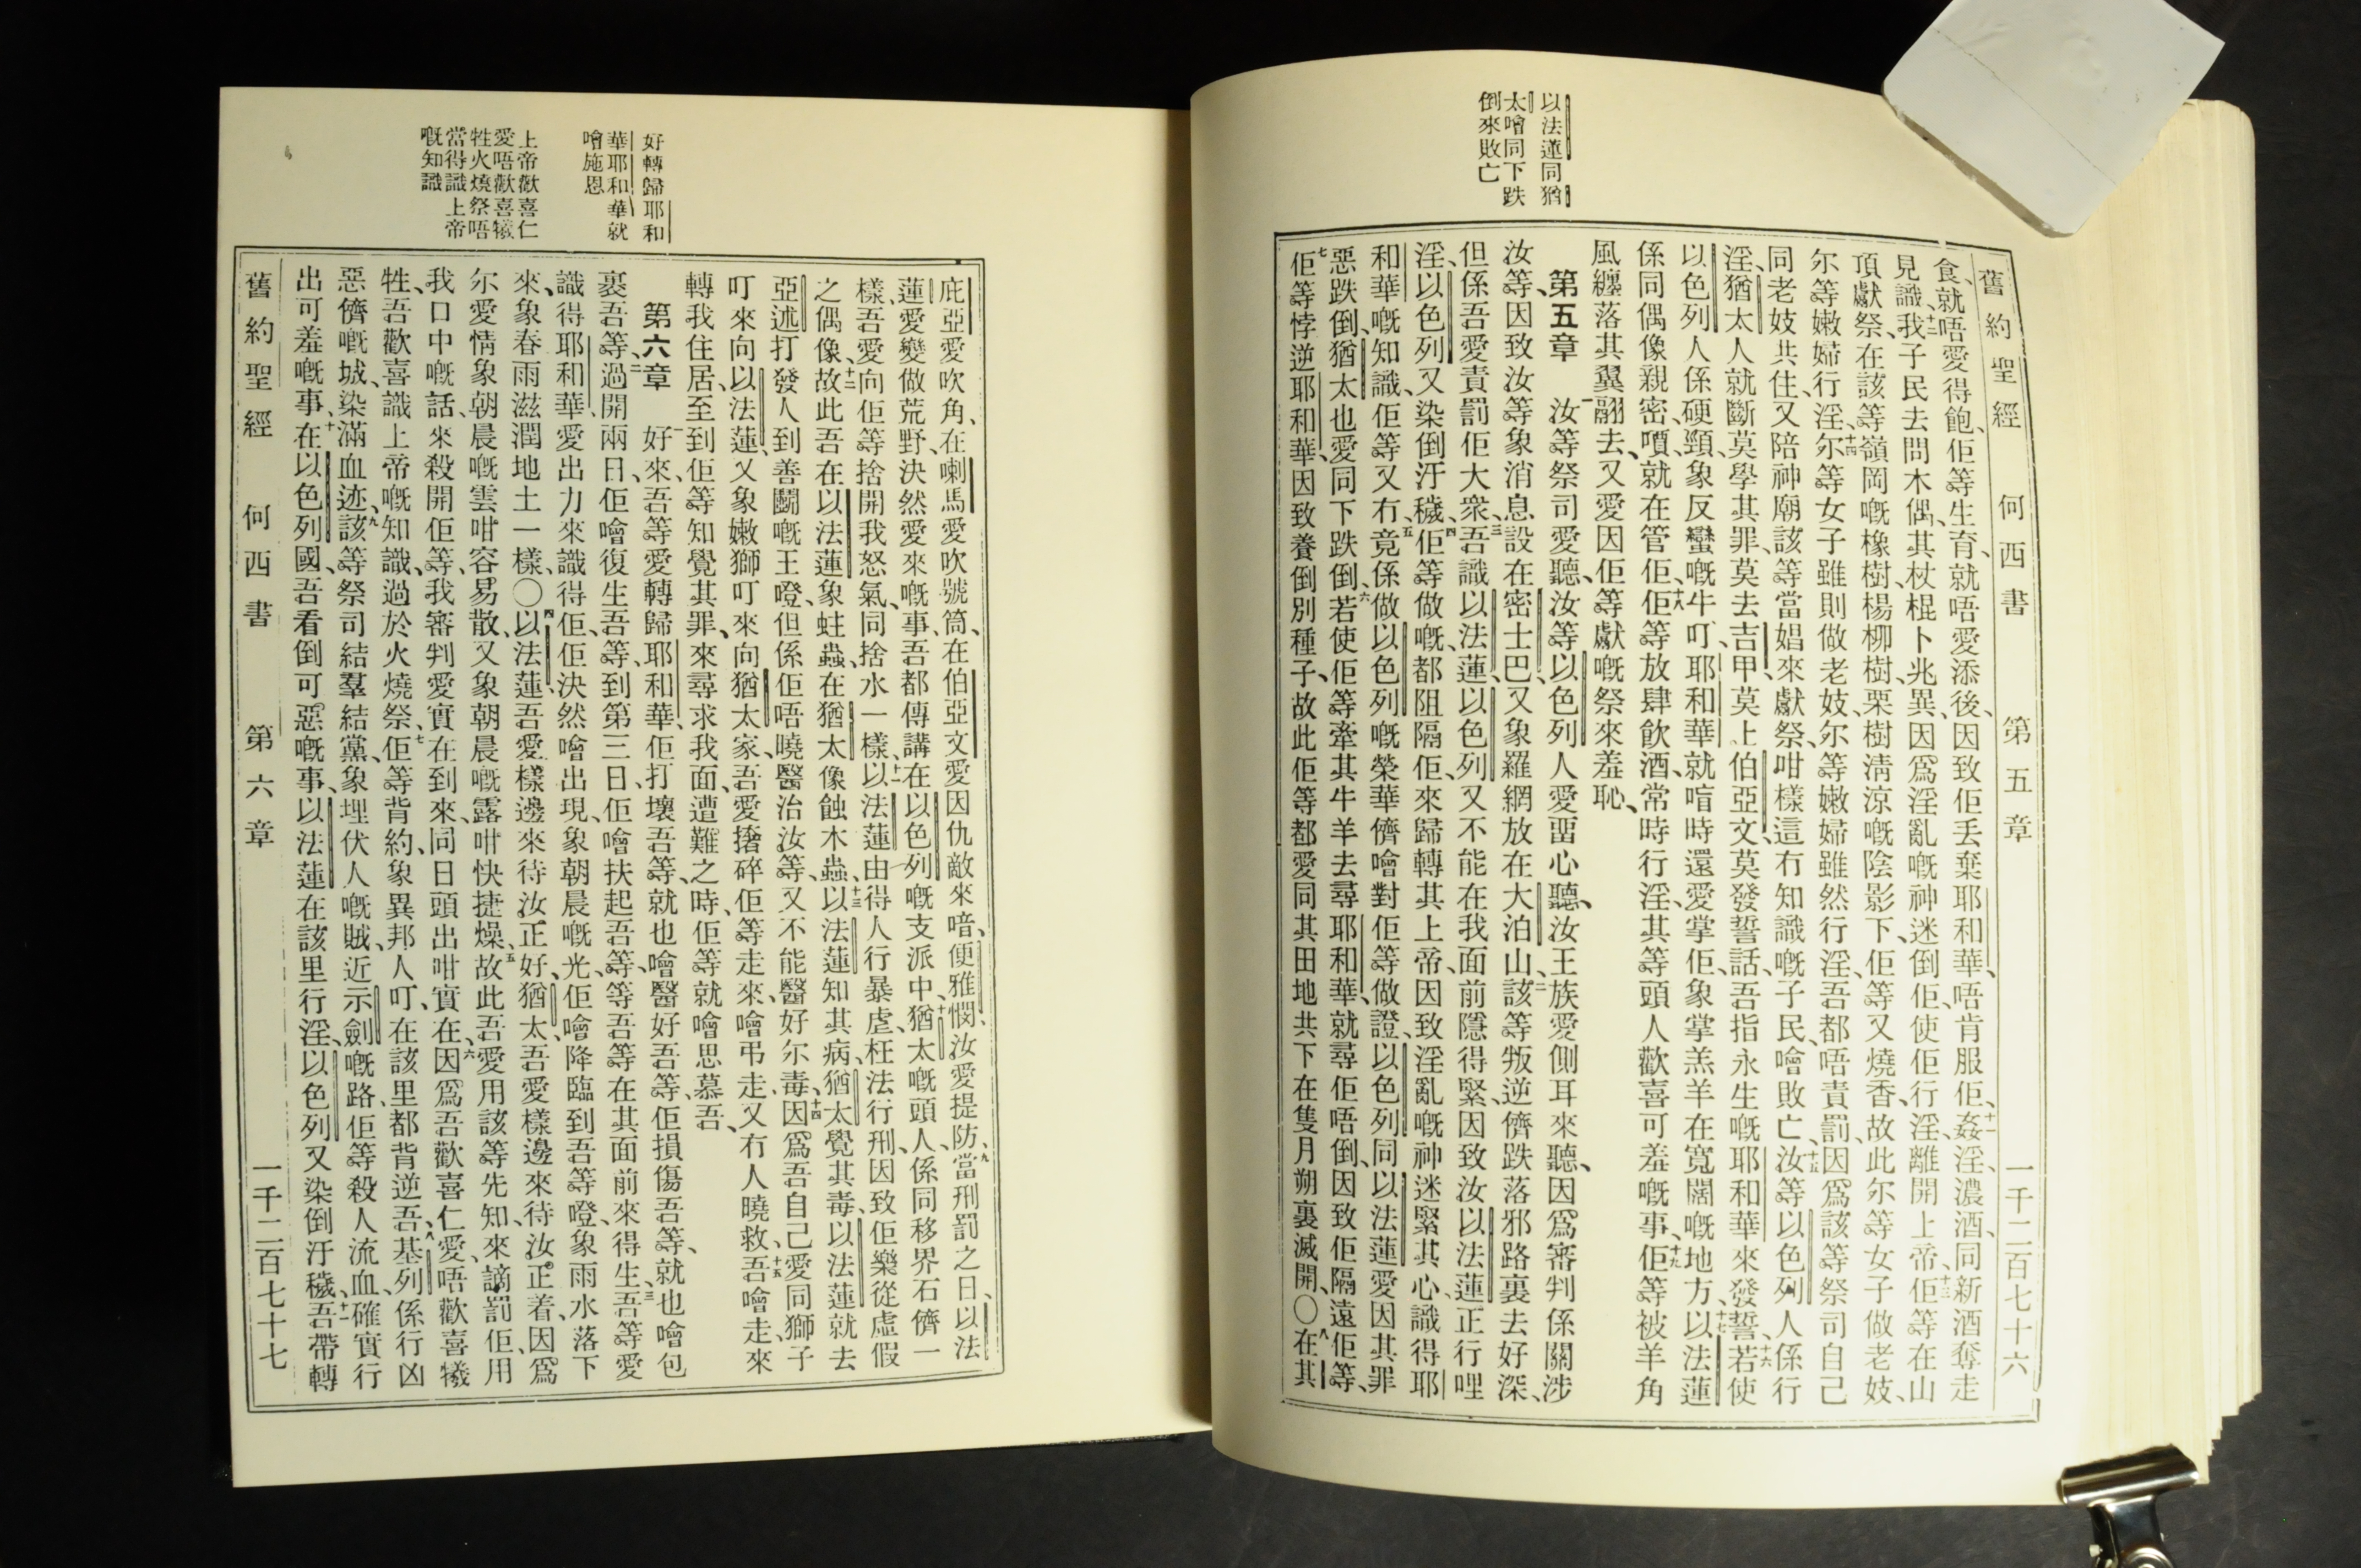 以法蓮同猶
太噲同下跌
倒來敗亡
舊約聖經 何西書 第五章 一千二百七十六
食、就唔愛得飽、佢等生育、就唔愛添後、因致佢丟棄耶和華、唔肯服佢、十一姦淫、濃酒、同新酒奪走
見識、十二我子民去問木偶、其杖棍卜兆異、因爲淫亂嘅神迷倒佢、使佢行淫、離開上帝、十三佢等在山
頂獻祭、在該等嶺岡嘅橡樹、楊柳樹、栗樹清涼嘅陰影下、佢等又燒香、故此尔等女子做老妓、
尔等嫩婦行淫、十四尔等女子雖則做老妓、尔等嫩婦雖然行淫、吾都唔責罰、因爲該等祭司自己
同老妓共住、又陪神廟該等當娼來獻祭、咁樣這冇知識嘅子民、噲敗亡、十五汝等以色列人係行
淫、猶太人就斷莫學其罪、莫去吉甲、莫上伯亞文、莫發誓話、吾指永生嘅耶和華來發誓、十六若使
以色列人係硬頸、象反蠻嘅牛叮、耶和華就唷時還愛掌佢、象掌羔羊在寬闊嘅地方、十七以法蓮
係同偶像親密、嘪就在管佢、十八佢等放肆飲酒、常時行淫、其等頭人歡喜可羞嘅事、十九佢等被羊角
風纏落其翼翮去、又愛因佢等獻嘅祭來羞恥、
第五章 一汝等祭司愛聽、汝等以色列人愛畱心聽、汝王族愛側耳來聽、因爲審判係關涉
汝等、因致汝等象消息設在密士巴、又象羅網放在大泊山、二該等叛逆儕跌落邪路裏去好深、
但係吾愛責罰佢大衆、三吾識以法蓮、以色列又不能在我面前隱得緊、因致汝以法蓮正行哩
淫、以色列又染倒汙穢、四佢等做嘅、都阻隔佢、來歸轉其上帝、因致淫亂嘅神迷緊其心、識得耶
和華嘅知識、佢等又冇、五竟係做以色列嘅榮華儕噲對佢等做證、以色列同以法蓮愛因其罪
惡跌倒、猶太也愛同下跌倒、六若使佢等牽其牛羊去尋耶和華、就尋佢唔倒、因致佢隔遠佢等、
七佢等悖逆耶和華、因致養倒別種子、故此佢等都愛同其田地共下在隻月朔裏滅開、〇八在其
好轉歸耶和
華耶和華就
噲施恩
上帝歡喜仁
愛唔歡喜犧
牲火燒祭唔
當得識上帝
嘅知識
庇亞愛吹角、在喇馬愛吹號筒、在伯亞文愛因仇敵來喑、便雅憫、汝愛提防、九當刑罰之日、以法
蓮愛變做荒野、決然愛來嘅事、吾都傳講在以色列嘅支派中、十猶太嘅頭人、係同移界石儕一
樣、吾愛向佢等捨開我怒氣、同捨水一樣、十一以法蓮由得人行暴虐、枉法行刑、因致佢樂從虛假
之偶像、十二故此吾在以法蓮象蛀蟲、在猶太像蝕木蟲、十三以法蓮知其病、猶太覺其毒、以法蓮就去
亞述打發人到善鬭嘅王噔、但係佢唔曉醫治汝等、又不能醫好尔毒、十四因爲吾自己愛同獅子
叮來向以法蓮、又象嫩獅叮來向猶太家、吾愛擆碎佢等走來、噲弔走、又冇人曉救、十五吾噲走、來
轉我住居、至到佢等知覺其罪、來尋求我面、遭難之時、佢等就噲思慕吾、
第六章 一好來、吾等愛轉歸耶和華、佢打壞吾等、就也噲醫好吾等、佢損傷吾等、就也噲包
裹吾等、二過開兩日、佢噲復生吾等、到第三日、佢噲扶起吾等、等吾等在其面前來得生、三吾等愛
識得耶和華、愛出力來識得佢、佢決然噲出現、象朝晨嘅光、佢噲降臨到吾等噔、象雨水落下
來、象春雨滋潤地土一樣、〇四以法蓮、吾愛樣邊來待汝正好、猶太、吾愛樣邊來待汝正着、因爲
尔愛情象朝晨嘅雲咁容易散、又象朝晨嘅露咁快捷燥、五故此吾愛用該等先知、來謫罰佢、用
我口中嘅話、來殺開佢等、我審判愛實在到來、同日頭出咁實在、六因爲吾歡喜仁愛、唔歡喜犧
牲、吾歡喜識上帝嘅知識、過於火燒祭、七佢等背約、象異邦人叮、在該里都背逆吾、八基列係行凶
惡儕嘅城、染滿血迹、九該等祭司結羣結黨、象埋伏人嘅賊、近示劍嘅路、佢等殺人流血、確實行
出可羞嘅事、十在以色列國、吾看倒可惡嘅事、以法蓮在該里行淫、以色列又染倒汙穢、十一吾帶轉
舊約聖經 何西書 第六章 一千二百七十七